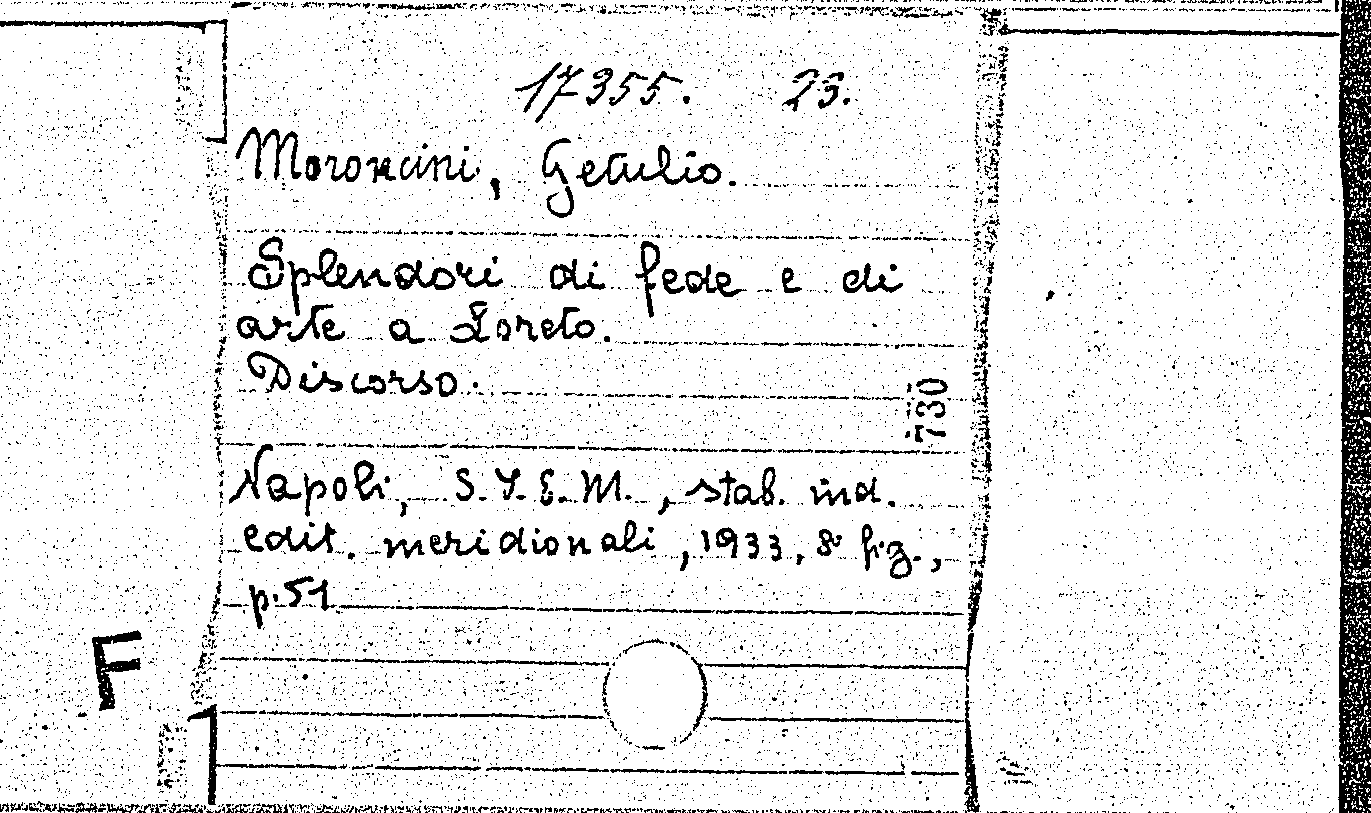 17355. 23.
Moroncini, Getulio.
Splendori di fede e di
arte a Loreto.
Discorso.
730
Napoli, S.I.E.M., stab. ind.
edit. meridionali, 1933, 8° fig.,
p. 51
F